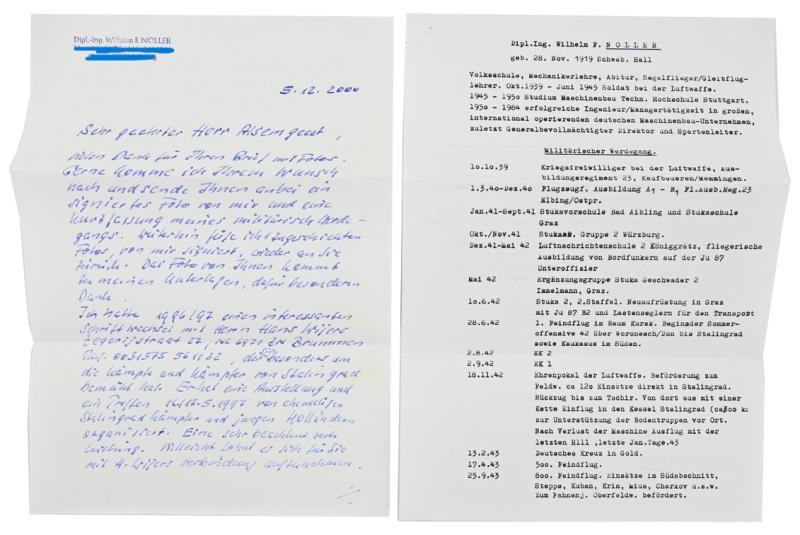 Dipl.-Ing. Wilhelm F. NOLLER
5.12.2000
Sehr geehrter Herr
vielen Dank für Ihren Brief mit Fotos.
Gerne komme ich Ihrem Wunsch
nach und sende Ihnen anbei ein
signiertes Foto von mir und eine
Kurzfassung meines militärischen Werde-
gangs. Weiterhin füge ich
Fotos, von mir signiert, wieder an Sie
zurück. Das Foto von Ihnen kommt
zu meinen Unterlagen, dafür besonderen
Dank.
Ich hatte 1996/97 einen interessanten
Schriftwechsel mit Herrn Hans Wijers
27, NL 6971 ZN Brummen
0031575 561132, der besonders um
die Kämpfe und Kämpfer von Stalingrad
bemüht hat. Er hat eine Ausstellung und
ein Treffen 1997 von ehemaligen
Stalingradkämpfer und jungen Holländern
organisiert. Eine sehr beachtenswerte
Leistung. Vielleicht lohnt es sich für Sie
mit H. Wijers Verbindung aufzunehmen.
Dipl.Ing. Wilhelm F. N O L L E R
geb. 28. Nov. 1919 Schwäb. Hall
Volksschule, Mechanikerlehre, Abitur, Segelflieger/Gleitflug-
lehrer. Okt.1939 - Juni 1945 Soldat bei der Luftwaffe.
1945 - 195o Studium Maschinenbau Techn. Hochschule Stuttgart.
195o - 1984 erfolgreiche Ingenieur/Managertätigkeit in großen,
international operierenden deutschen Maschinenbau-Unternehmen,
zuletzt Generalbevollmächtigter Direktor und Spartenleiter.
Militärischer Werdegang.
1o.1o.39 Kriegsfreiwilliger bei der Luftwaffe, Aus-
bildungsregiment 23, Kaufbeueren/Memmingen.
1.3.4o-Dez.4o Flugzeugf. Ausbildung A1 - B1 Fl.Ausb.Reg.23
Elbing/Ostpr.
Jan.41-Sept.41 Stukavorschule Bad Aibling und Stukaschule
Graz
Okt./Nov.41 Gruppe 2 Würzburg.
Dez.41-Mai 42 Luftnachrichtenschule 2 Königgrätz, fliegerische
Ausbildung von Bordfunkern auf der Ju 87
Unteroffizier
Mai 42 Ergänzungsgruppe Stuka Geschwader 2
Immelmann, Graz.
1o.6.42 Stuka 2, 2.Staffel. Neuaufrüstung in Graz
mit Ju 87 B2 und Lastenseglern für den Transport
28.6.42 1. Feindflug im Raum Kursk. Beginader Sommer-
offensive 42 über Woronesch/Don bis Stalingrad
sowie Kaukasus im Süden.
2.8.42 EK 2
2.9.42 EK 1
18.11.42 Ehrenpokal der Luftwaffe. Beförderung zum
Feldw. ca 12o Einsätze direkt in Stalingrad.
Rückzug bis zum Tschir. Von dort aus mit einer
Kette Einflug in den Kessel Stalingrad
zur Unterstützung der Bodentruppen vor Ort.
Nach Verlust der Maschine Ausflug mit der
letzten H111 ,letzte Jan.Tage.43
13.2.43 Deutsches Kreuz in Gold.
17.4.43 5oo. Feindflug.
25.9.43 8oo. Feindflug. Einsätze im Südabschnitt,
Steppe, Kuban, Krim, Mius, Charkov u.s.w.
Zum Fahnenj. Oberfeldw. befördert.